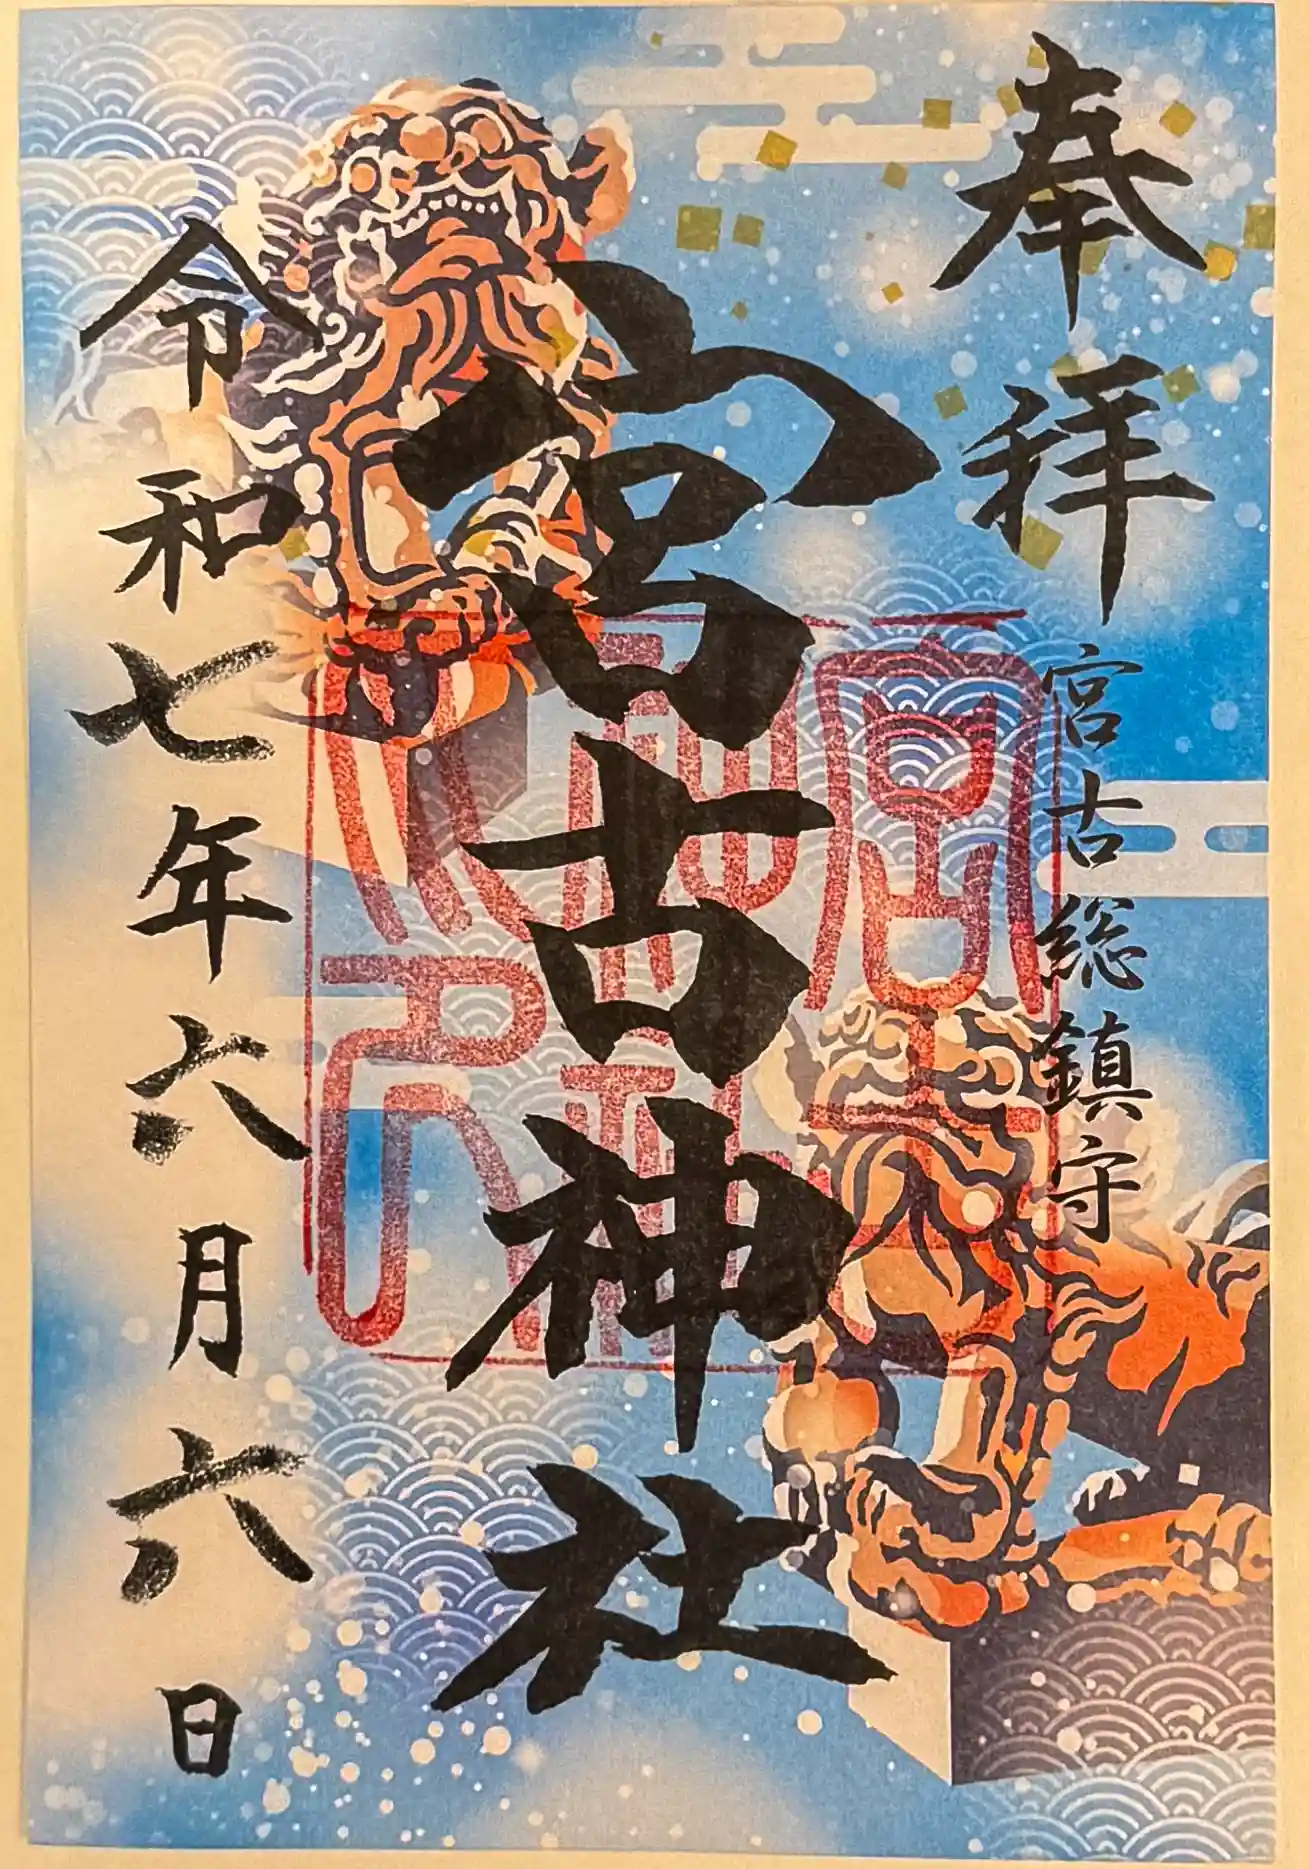 奉拝
宮古総鎮守
宮古神社
宮古神社之印
令和七年六月六日